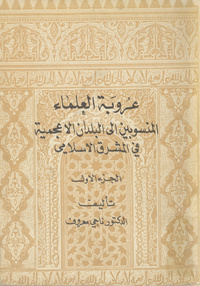 عروبة العلماء
المنسوبين إلى البلدان الأعجمية
في المشرق الإسلامي
الجزء الأول
تأليف
الدكتور ناجي معروف